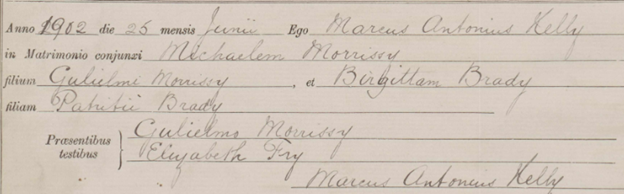 Anno 1902 die 25 mensis Junii Ego Marcus Antonius Kelly
in Matrimonio conjunxi Michaelem Morrissy
filium Gulielmi Morrissy, et Birgittam Brady
filiam Patritii Brady
Præsentibus testibus } Gulielmo Morrissy
Elizabeth Fry
Marcus Antonius Kelly